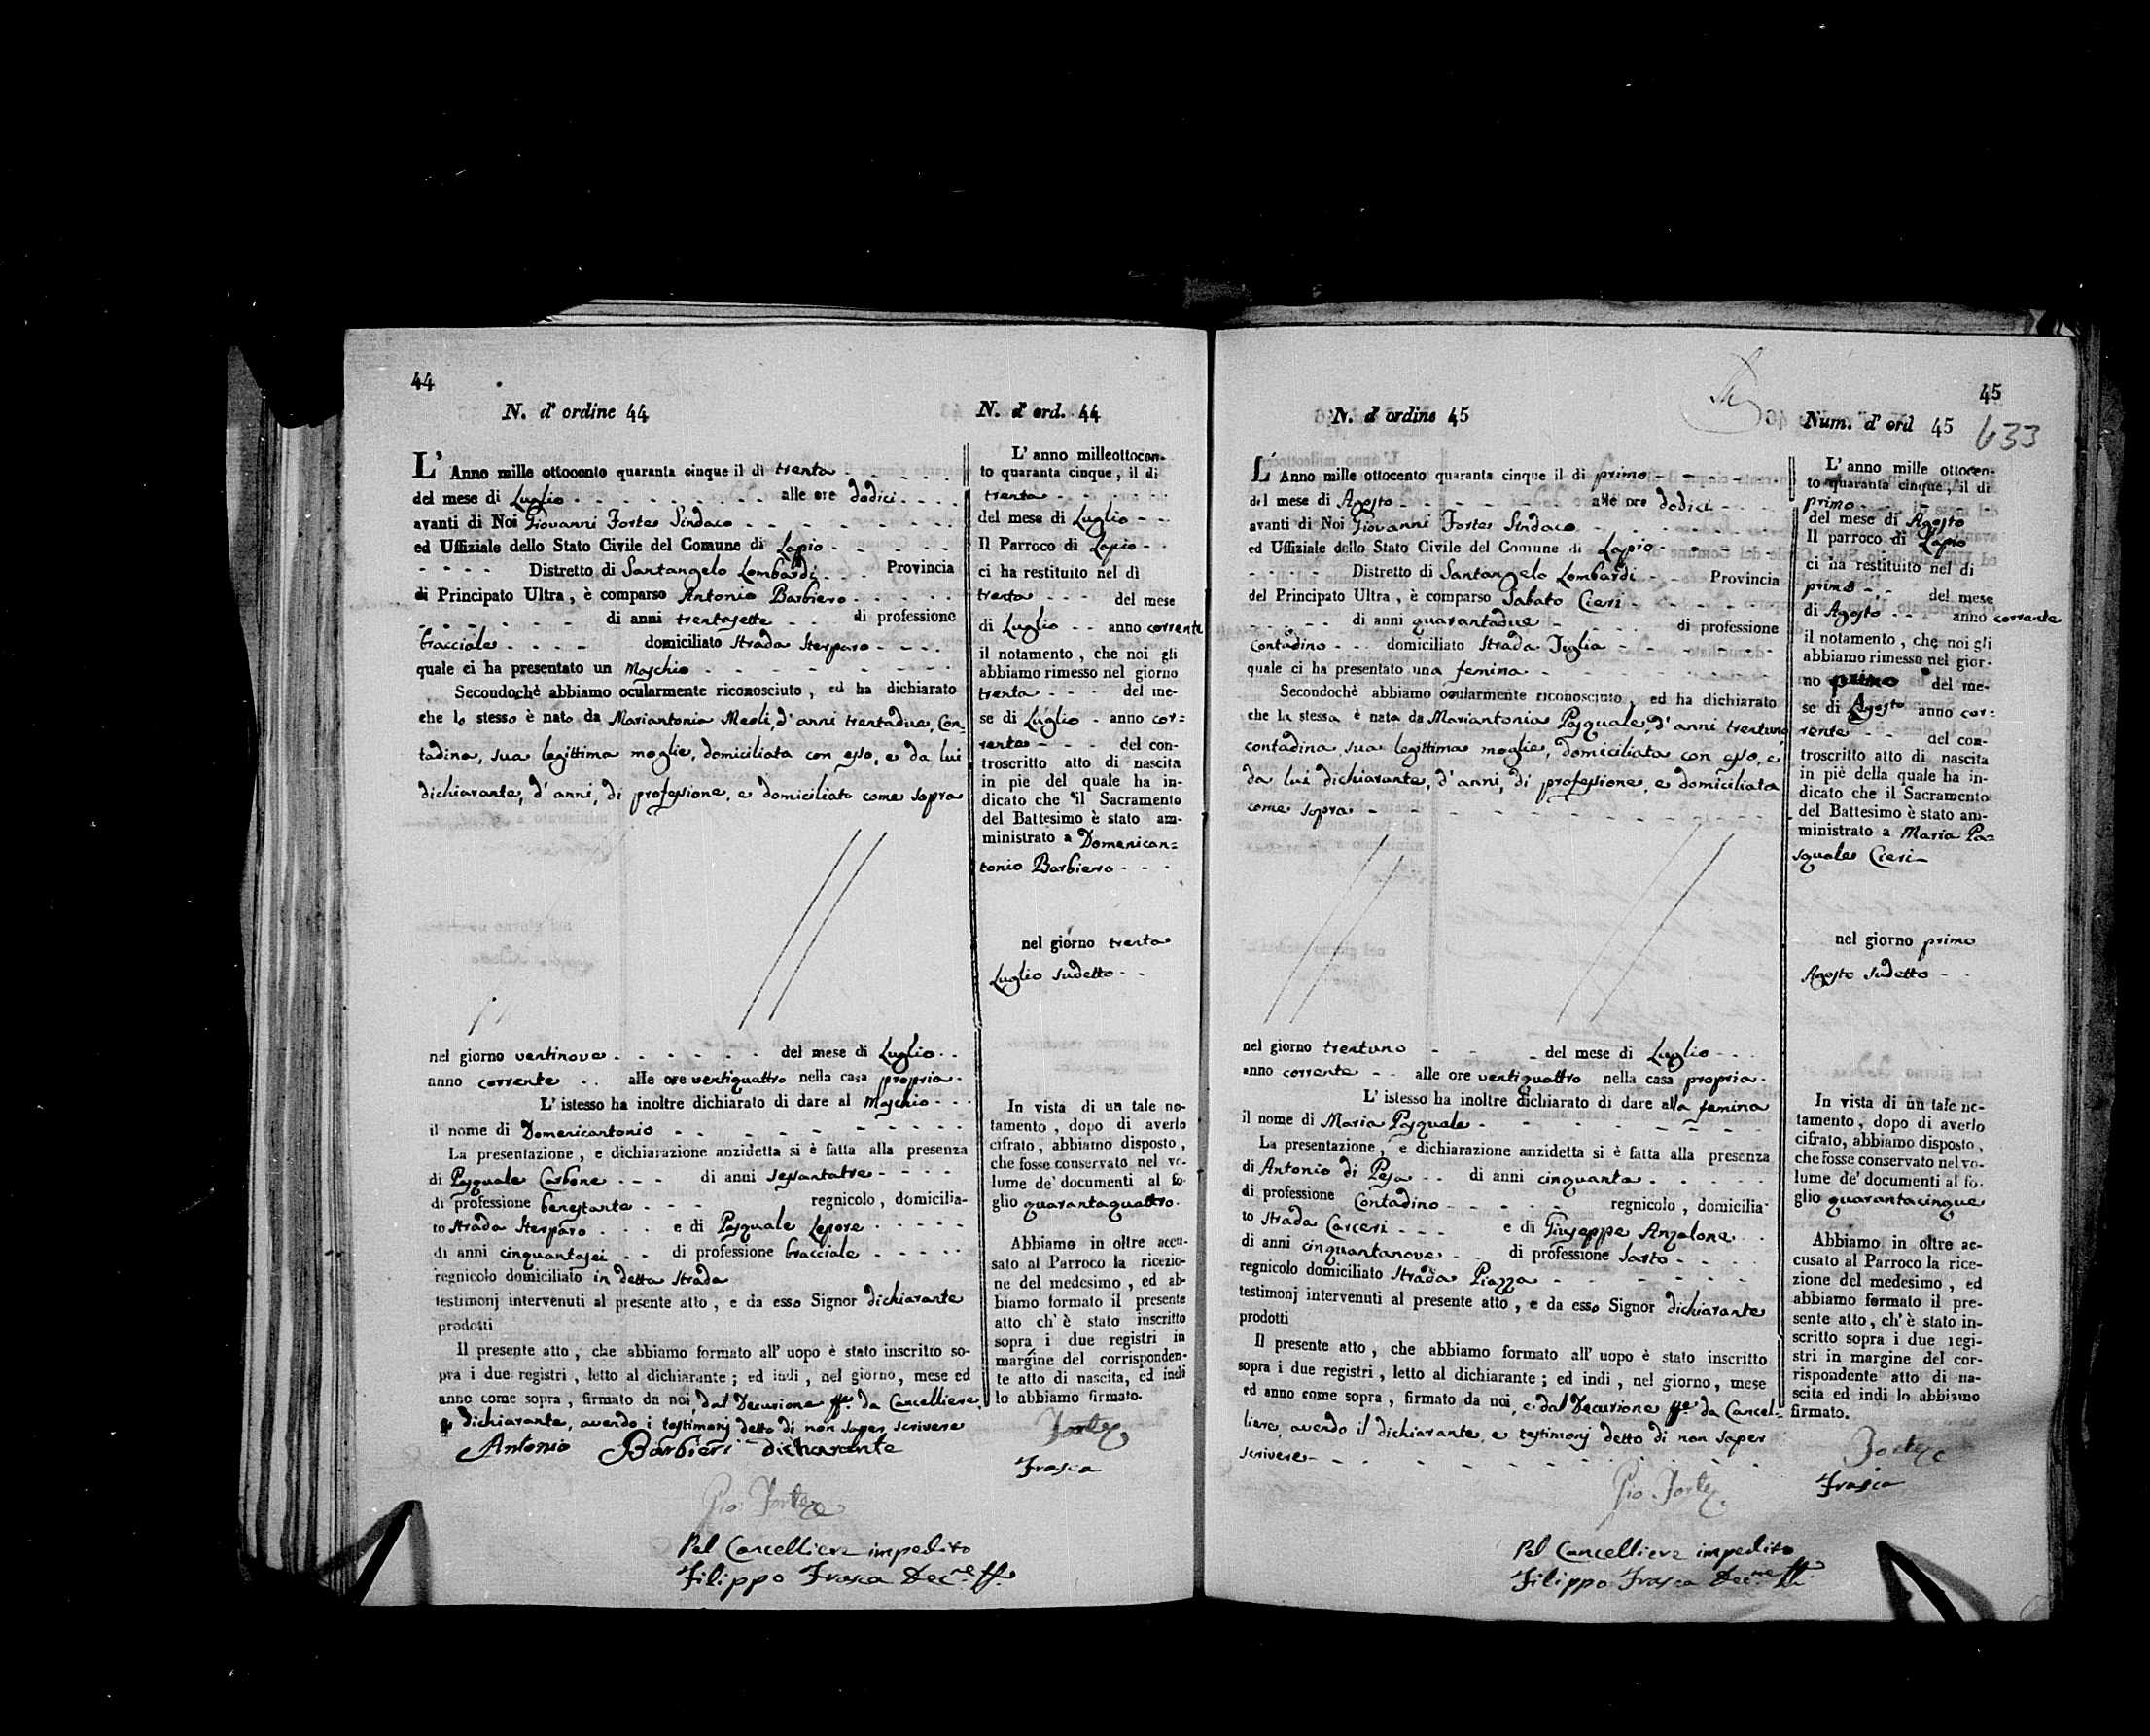 44
N. d' ordine 44
L' Anno mille ottocento quaranta cinque il dì trenta
del mese di Luglio alle ore dodici
avanti di Noi Giovanni Forte Sindaco
ed Uffiziale dello Stato Civile del Comune di Lapio
Distretto di Santangelo Lombardi Provincia
di Principato Ultra, è comparso Antonio Barbiero
di anni trentasette di professione
bracciale domiciliato Strada Sterparo
quale ci ha presentato un Maschio
Secondochè abbiamo ocularmente riconosciuto, ed ha dichiarato
che lo stesso è nato da Mariantonia Meoli, d'anni trentadue, Con-
tadina, sua legittima moglie, domiciliata con esso, e da lui
dichiarante, d'anni, di professione, e domiciliato come sopra
nel giorno ventinove del mese di Luglio
anno corrente alle ore ventiquattro nella casa propria
L' istesso ha inoltre dichiarato di dare al Maschio
il nome di Domenicantonio
La presentazione, e dichiarazione anzidetta si è fatta alla presenza
di Pasquale Carbone di anni sessantatre
di professione benestante regnicolo, domicilia-
to Strada Sterparo e di Pasquale Lepore
di anni cinquantasei di professione bracciale
regnicolo domiciliato in detta Strada
testimonj intervenuti al presente atto, e da esso Signor dichiarante
prodotti
Il presente atto, che abbiamo formato all' uopo è stato inscritto so-
pra i due registri, letto al dichiarante; ed indi, nel giorno, mese ed
anno come sopra, firmato da noi, dal Decurione ff. da Cancelliere,
e dichiarante, avendo i testimonj detto di non saper scrivere
Antonio Barbieri dichiarante
Gio. Forte
Pel Cancelliere impedito
Filippo Frasca Dec.ne ff.
N. d' ord. 44
L' anno milleottocen-
to quaranta cinque, il di
trenta
del mese di Luglio
Il Parroco di Lapio
ci ha restituito nel dì
trenta del mese
di Luglio anno corrente
il notamento, che noi gli
abbiamo rimesso nel giorno
trenta del me-
se di Luglio anno cor=
rente del con-
troscritto atto di nascita
in pie del quale ha in-
dicato che il Sacramento
del Battesimo è stato am-
ministrato a Domenican=
tonio Barbiero
nel giorno trenta
Luglio sudetto
In vista di un tale no-
tamento, dopo di averlo
cifrato, abbiamo disposto,
che fosse conservato nel vo-
lume de' documenti al fo-
glio quarantaquattro
Abbiamo in oltre accu-
sato al Parroco la ricezio-
ne del medesimo, ed ab-
biamo formato il presente
atto ch' è stato inscritto
sopra i due registri in
margine del corrisponden-
te atto di nascita, ed indi
lo abbiamo firmato.
Forte
Frasca
45
633
N. d' ordine 45
L' Anno mille ottocento quaranta cinque il di primo
del mese di Agosto alle ore dodici
avanti di Noi Giovanni Forte Sindaco
ed Uffiziale dello Stato Civile del Comune di Lapio
Distretto di Santangelo Lombardi Provincia
del Principato Ultra, è comparso Sabato Cieri
di anni quarantadue di professione
Contadino domiciliato Strada Tiglia
quale ci ha presentato una femina
Secondochè abbiamo ocularmente riconosciuto, ed ha dichiarato
che la stessa è nata da Mariantonia Pasquale, d'anni trentuno
contadina, sua legittima moglie, domiciliata con esso, e
da lui dichiarante, d'anni, di professione, e domiciliata
come sopra
nel giorno trentuno del mese di Luglio
anno corrente alle ore ventiquattro nella casa propria
L' istesso ha inoltre dichiarato di dare alla femina
il nome di Maria Pasquale
La presentazione, e dichiarazione anzidetta si è fatta alla presenza
di Antonio di Pesa di anni cinquanta
di professione Contadino regnicolo, domicilia-
to Strada Carceri e di Giuseppe Anzalone
di anni cinquantanove di professione Sarto
regnicolo domiciliato Strada Piazza
testimonj intervenuti al presente atto, e da esso Signor dichiarante
prodotti
Il presente atto, che abbiamo formato all' uopo è stato inscritto
sopra i due registri, letto al dichiarante; ed indi, nel giorno, mese
ed anno come sopra, firmato da noi, e dal Decurione ff. da Cancel=
liere, avendo il dichiarante, e testimonj detto di non saper
scrivere
Gio. Forte
Pel Cancelliere impedito
Filippo Frasca Dec.ne ff.
Num. d' ord 45
L' anno mille ottocen-
to quaranta cinque, il di
primo
del mese di Agosto
Il parroco di Lapio
ci ha restituito nel di
primo del mese
di Agosto anno corrente
il notamento, che noi gli
abbiamo rimesso nel gior-
no primo del me-
se di Agosto anno cor=
rente del con-
troscritto atto di nascita
in piè della quale ha in-
dicato che il Sacramento
del Battesimo è stato am-
ministrato a Maria Pa=
squale Cieri
nel giorno primo
Agosto sudetto
In vista di un tale no-
tamento, dopo di averlo
cifrato, abbiamo disposto,
che fosse conservato nel vo-
lume de' documenti al fo-
glio quarantacinque
Abbiamo in oltre ac-
cusato al Parroco la rice-
zione del medesimo, ed
abbiamo formato il pre-
sente atto, ch' è stato in-
scritto sopra i due regi-
stri in margine del cor-
rispondente atto di na-
scita ed indi lo abbiamo
firmato.
Forte
Frasca